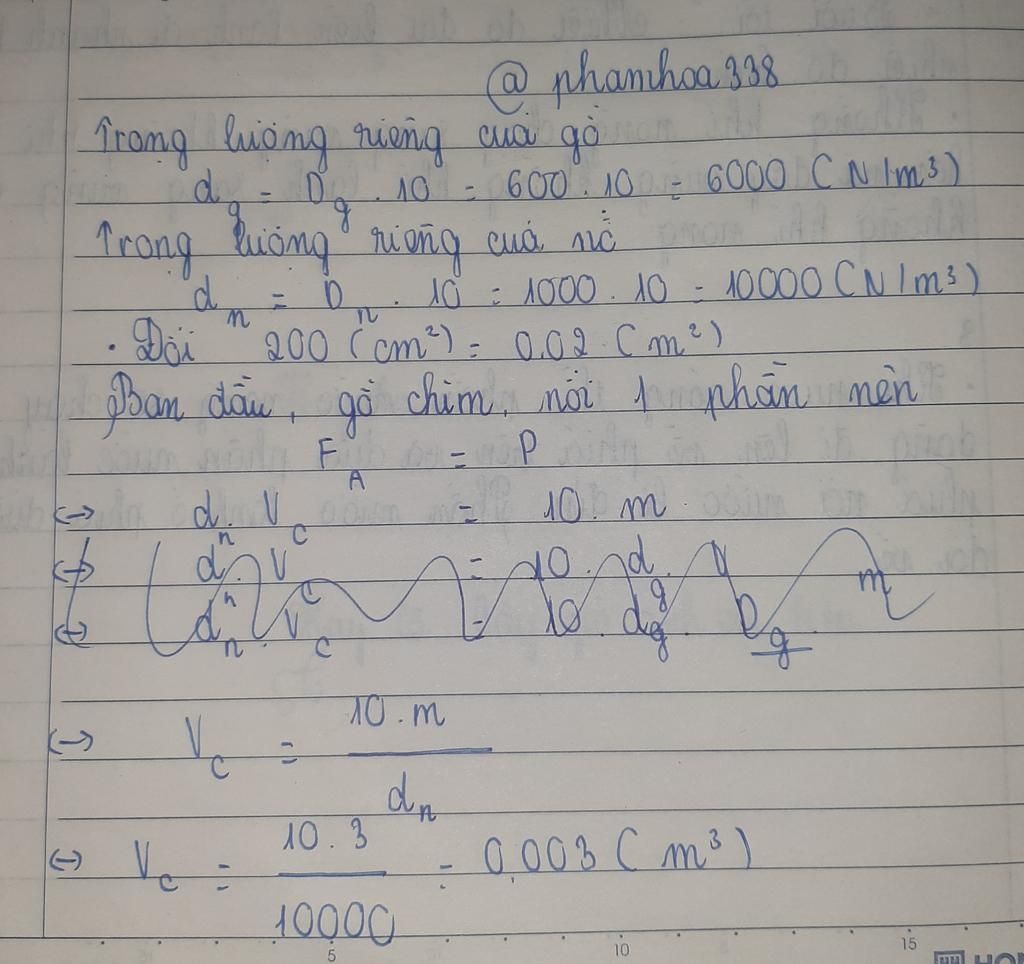 @ phamhoa338
Trọng lượng riêng của gỗ
d_g = D_g . 10 = 600 . 10 = 6000 (N/m³)
Trọng lượng riêng của nước
d_n = D_n . 10 = 1000 . 10 = 10000 (N/m³)
. Đổi 200 (cm²) = 0.02 (m²)
Ban đầu, gỗ chìm, nổi 1 phần nên
F_A = P
<-> d_n . V_c = 10. m
<-> V_c = 10.m / d_n
<-> V_c = 10.3 / 10000 = 0,003 (m³)
5 10 15